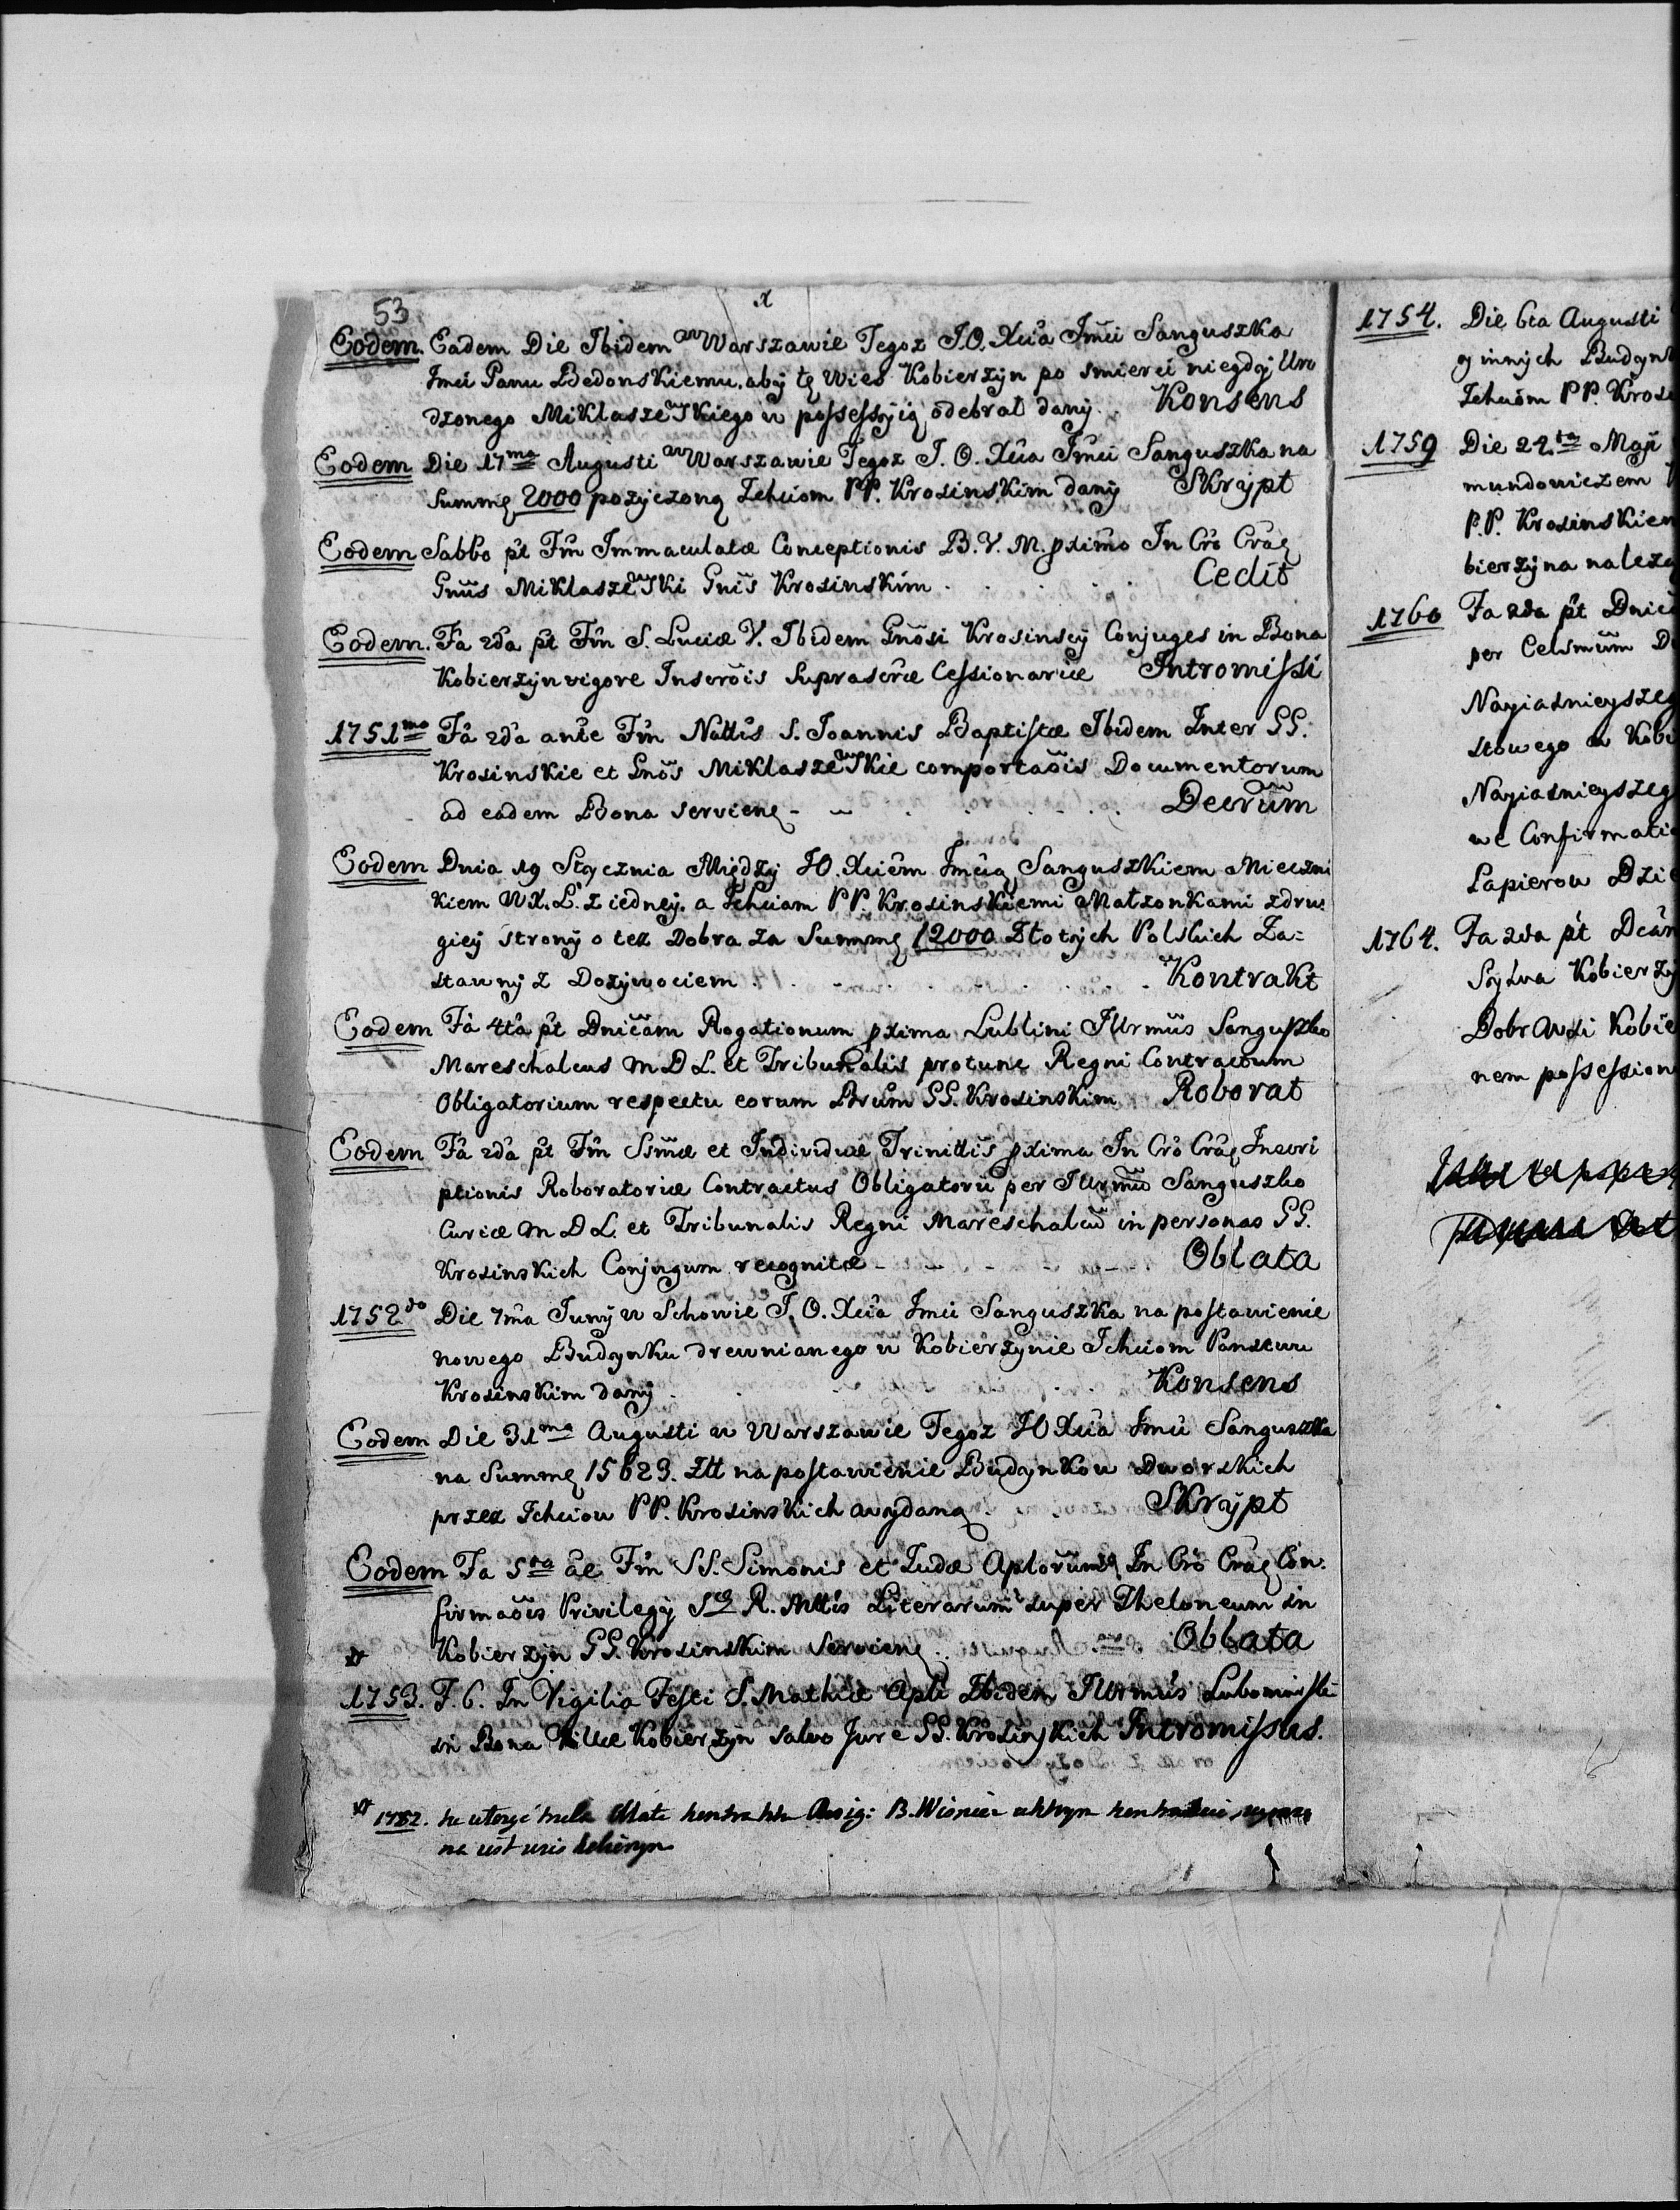 53
x
Eodem. Eadem Die Ibidem w Warszawie Tegoz J.O. Xcia Jmci Sanguszka
Jmci Panu Bedonskiemu, aby tę Wies Kobierzyn po smierci niegdy Uro
dzonego Miklaszewskiego w possessyią odebrał dany. Konsens
Eodem Die 17ma Augusti w Warszawie Tegoz J. O. Xcia Jmci Sanguszka na
Summę 2000 pozyczoną Ichciom PP. Krosinskim dany Skrypt
Eodem Sabbo pt Ftm Immaculatæ Conceptionis B. V. M. pximo In Cro Crac
Gnus Miklaszewski Gnis Krosinskim . . . Cedit
Eodem. Fa 2da pt Ftm S. Luciæ V. Ibidem Gnosi Krosinscy Conjuges in Bona
Kobierzyn vigore Inscrois Suprascræ Cessionariæ Intromissi
1751mo Fa 2da ante Ftm Nattis S. Joannis Baptistæ Ibidem Inter GG.
Krosinskie et Gnos Miklaszewskie comportaois Documentorum
ad eadem Bona servien - - . . . Decrum
Eodem Dnia 19 Stycznia Między JO. Xciem Jmcią Sanguszkiem Mieczni
kiem W.X.L. z iedney, a Ichciam PP. Krosinskiemi Małzonkami zdru
giey strony o tez Dobra za Summę 12000 Złotych Polskich Za=
stawny z Dozywociem . . . . Kontrakt
Eodem Fa 4ta pt Dnicam Rogationum pxima Lublini Illrmus Sanguszko
Mareschalcus M D L. et Tribunalis protunc Regni Contractum
Obligatorium respectu eorum Brum GG. Krosinskim Roborat
Eodem Fa 2da pt Ftm Ssmæ et Individuæ Trinittis pxima In Cro Crac Inscri
ptionis Roboratoriæ Contractus Obligatorii per Illrmum Sanguszko
Curiæ M D L. et Tribunalis Regni Mareschalcum in personas GG.
Krosinskich Conjugum recognitæ - - - - Oblata
1752do Die 7ma Juny w Schowie J. O. Xcia Jmci Sanguszka na postawienie
nowego Budynku drewnianego w Kobierzynie Ichciom Panstwu
Krosinskim dany . . . . Konsens
Eodem Die 31ma Augusti w Warszawie Tegoz JO Xcia Jmci Sanguszka
na Summę 15623. Złł na postawienie Budynkow Dworskich
przez Ichciow PP. Krosinskich wydaną. Skrypt
Eodem Fa 5ta ae Ftm SS. Simonis et Judæ Aplorum In Cro Crac Con.
firmaois Privilegy S. R. Mttis Literarum super Theloneum in
Kobierzyn GG. Krosinskim Servien . . Oblata
1753. F. 6. In Vigilia Festi S. Mathiæ Apli Ibidem Illrmus Lubomirski
in Bona Villæ Kobierzyn salvo Jure GG. Krosinskich Intromissus.
1782.
1754. Die 6ta Augusti
y innych Budyn
Ichciom PP. Kros
1759 Die 24ta Maji
mundowiczem
P.P. Krosinskiem
bierzyna nalezą
1760 Fa 2da pt Dnic
per Celsmum D
Nayiasnieyszeg
stowego w Kobi
Nayiasnieyszeg
we Confirmati
Papierow Dzie
1764. Fa 2da pt Dcam
Sylva Kobierzy
Dobr Wsi Kobie
nem possession